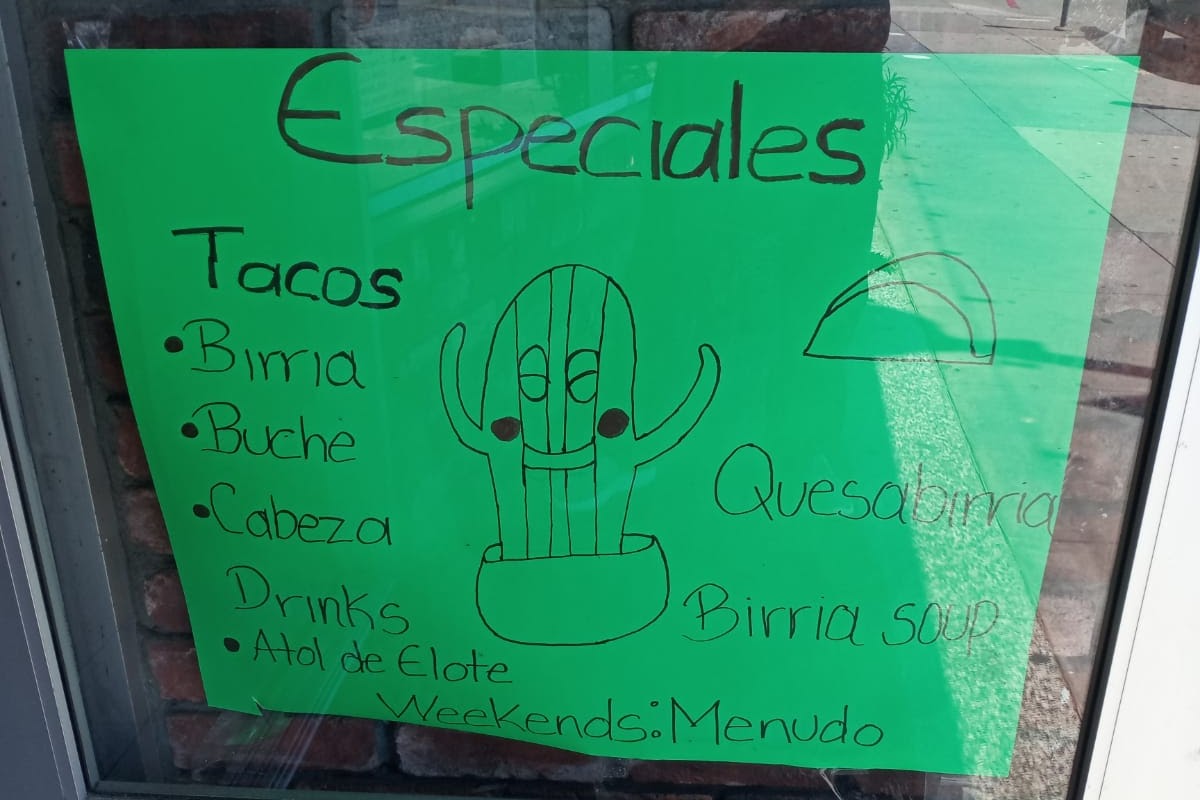 Especiales
Tacos
• Birria
• Buche
• Cabeza
Drinks
• Atol de Elote
Quesabirria
Birria soup
Weekends: Menudo